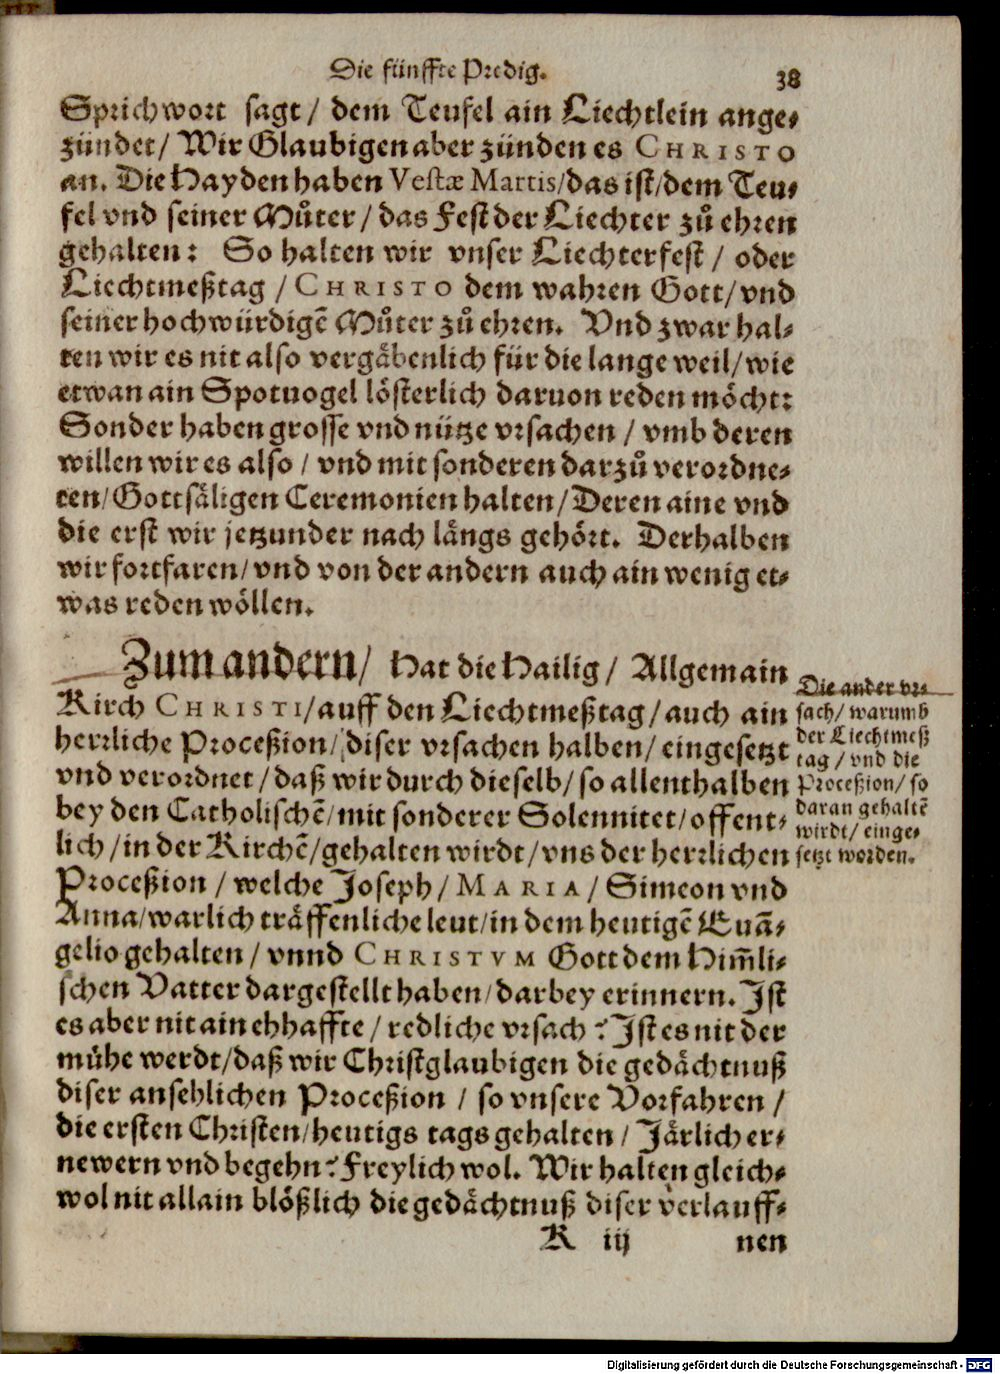 Die fünffte Predig.
38
Sprichwort sagt / dem Teufel ain Liechtlein ange⸗
zündet / Wir Glaubigen aber zünden es CHRISTO
an. Die Hayden haben Vestæ Martis / das ist / dem Teu⸗
fel vnd seiner Můter / das Fest der Liechter zů ehren
gehalten: So halten wir vnser Liechterfest / oder
Liechtmeßtag / CHRISTO dem wahren Gott / vnd
seiner hochwürdigē Můter zů ehren. Vnd zwar hal⸗
ten wir es nit also vergåbenlich für die lange weil / wie
etwan ain Spotuogel lösterlich daruon reden möcht:
Sonder haben grosse vnd nütze vrsachen / vmb deren
willen wir es also / vnd mit sonderen darzů verordne⸗
ten / Gottsäligen Ceremonien halten / Deren aine vnd
die erst wir jetzunder nach längs gehört. Derhalben
wir fortfaren / vnd von der andern auch ain wenig et⸗
was reden wöllen.
Zum andern / Hat die Hailig / Allgemain
Kirch CHRISTI / auff den Liechtmeßtag / auch ain
herrliche Proceßion / diser vrsachen halben / eingesetzt
vnd verordnet / daß wir durch dieselb / so allenthalben
bey den Catholischē / mit sonderer Solennitet / offent⸗
lich / in der Kirchē / gehalten wirdt / vns der herrlichen
Proceßion / welche Joseph / MARIA / Simeon vnd
Anna / warlich träffenliche leut / in dem heutigē Euā⸗
gelio gehalten / vnnd CHRISTVM Gott dem Him̄li⸗
schen Vatter dargestellt haben / darbey erinnern. Ist
es aber nit ain ehhaffte / redliche vrsach? Ist es nit der
mühe werdt / daß wir Christglaubigen die gedächtnuß
diser ansehlichen Proceßion / so vnsere Vorfahren /
die ersten Christen / heutigs tags gehalten / Järlich er⸗
newern vnd begehn? Freylich wol. Wir halten gleich⸗
wol nit allain blößlich die gedächtnuß diser verlauff⸗
K iij nen
Die ander vr⸗
sach / warumb
der Liechtmeß
tag / vnd die
Proceßion / so
daran gehaltē
wirdt / einge⸗
setzt worden.
Digitalisierung gefördert durch die Deutsche Forschungsgemeinschaft - DFG